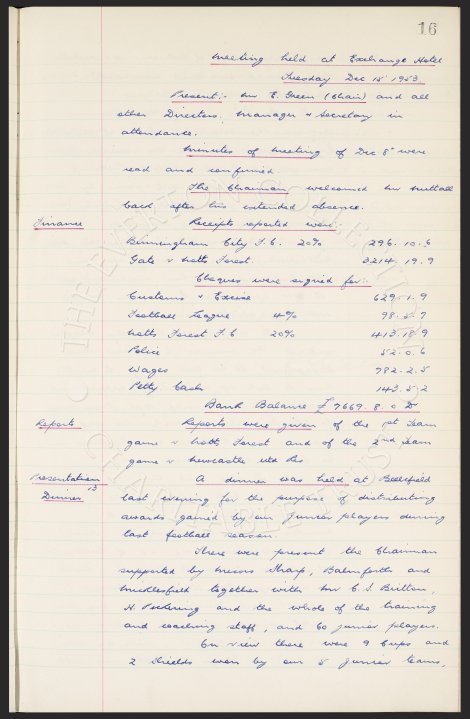 16
Meeting held at Exchange Hotel
Tuesday Dec 15 1953
Present:- Mr E. Green (Chair) and all
other Directors, Manager & Secretary in
attendance.
Minutes of meeting of Dec 8th were
read and confirmed
The Chairman welcomed Mr Nuttall
back after his extended absence.
Finance Receipts reported were:
Birmingham City F.C. 20% 296.10.6
Gate v Notts Forest. 3214.19.9
Cheques were signed for:-
Customs & Excise 629.1.9
Football League 4% 98.5.7
Notts Forest F.C 20% 413.18.9
Police 52.0.6
Wages 782.2.5
Petty Cash 143.5.2
Bank Balance £7669.8.0 Dr
Reports Reports were given of the 1st Team
game v Notts Forest and of the 2nd Team
game v Newcastle Utd Res
Presentation A dinner was held at Bellefield
Dinner last evening for the purpose of distributing
awards gained by our junior players during
last football season.
There were present the Chairman
supported by Messrs Sharp, Balmforth and
Micklesfield together with Mr C.S. Britton,
H Pickering and the whole of the training
and coaching staff, and 60 junior players.
On view there were 9 Cups and
2 Shields won by our 5 junior teams,
THE EVERTON COLLECTION
CHARITABLE TRUST